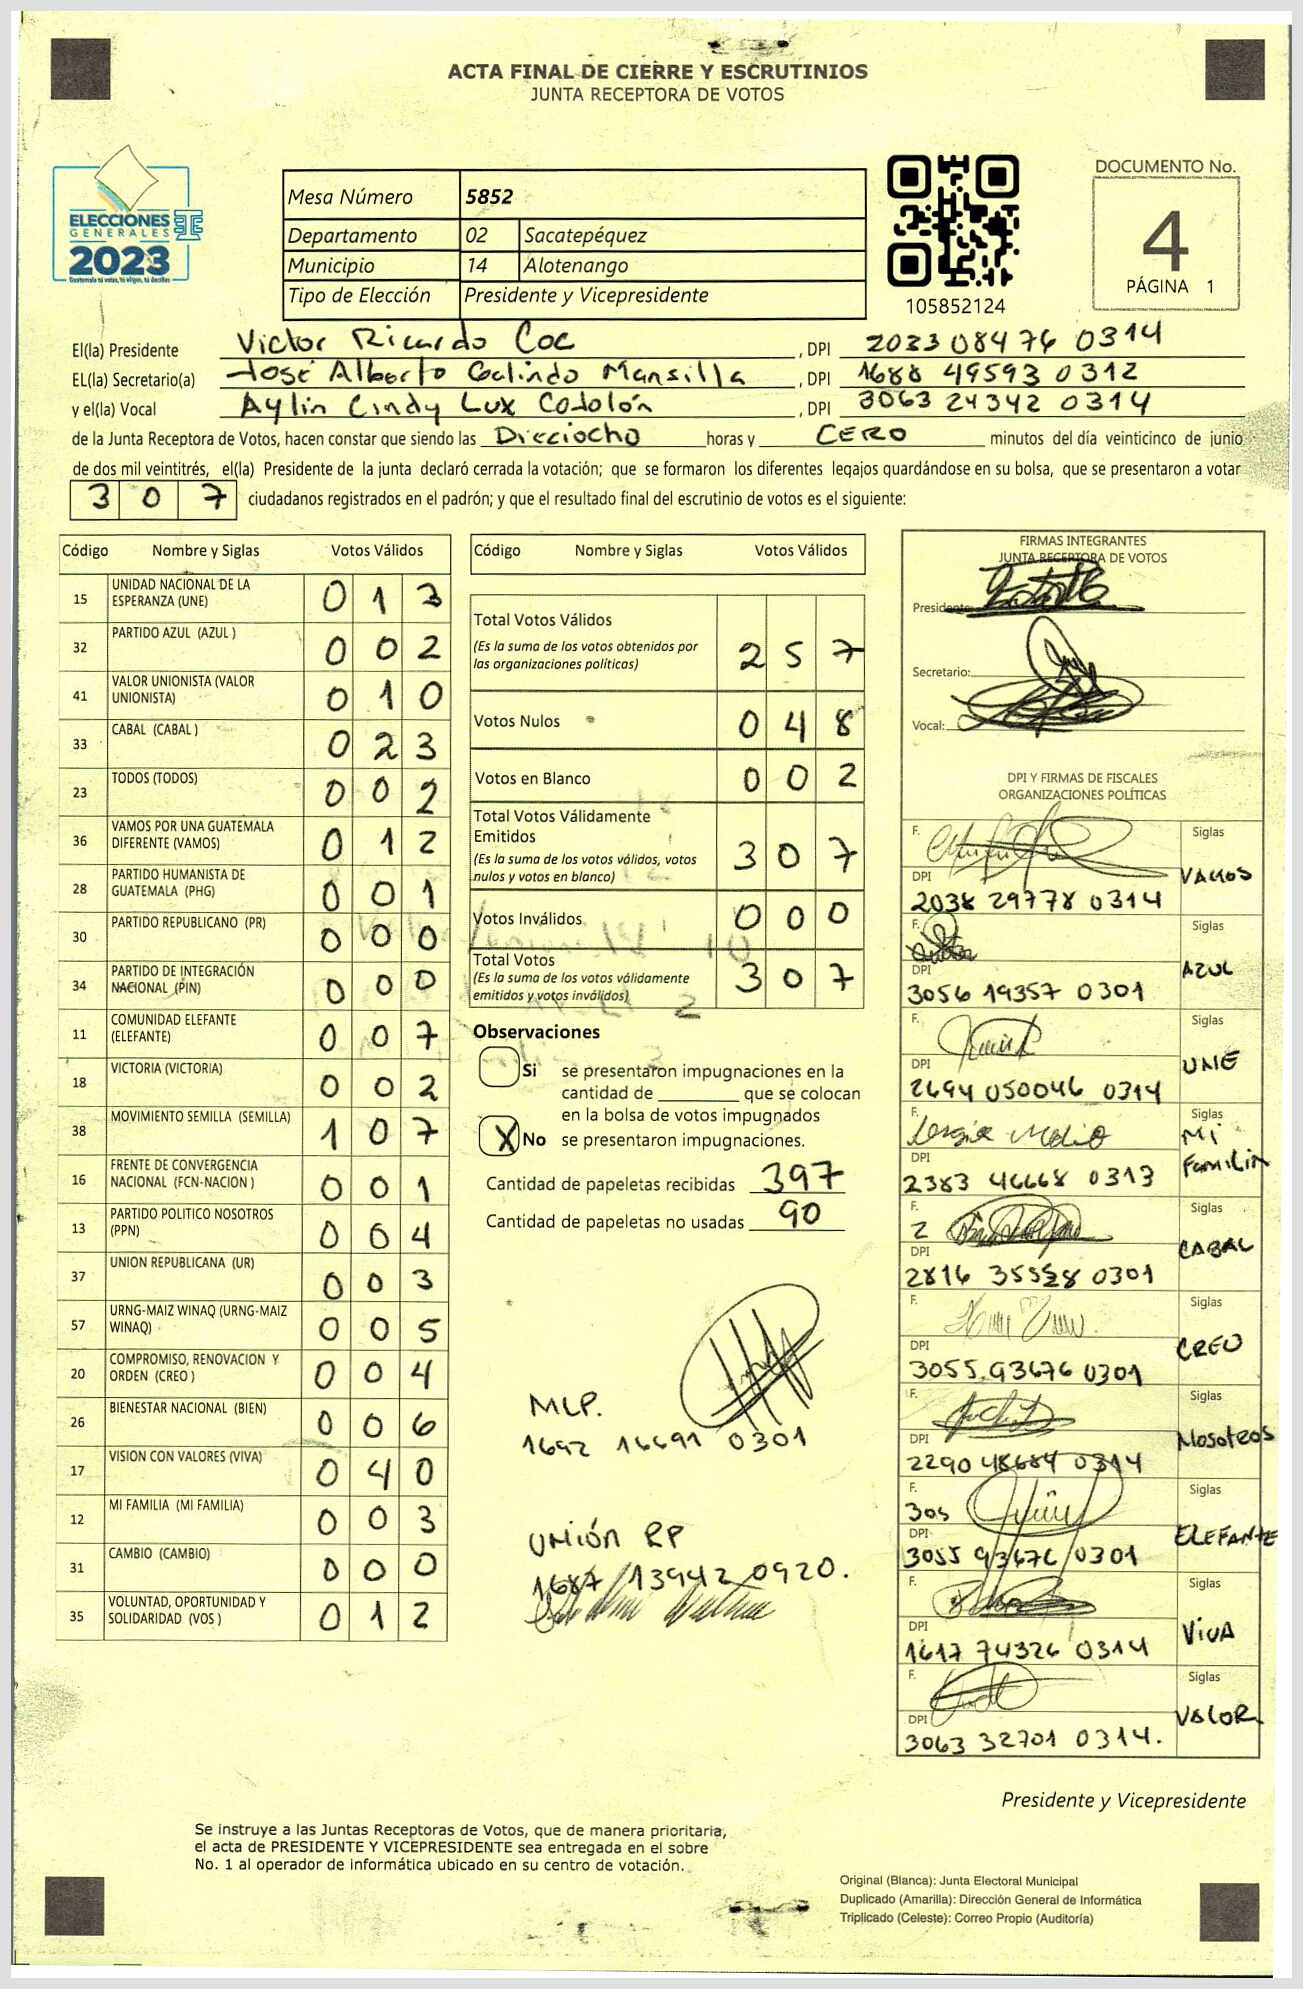 ACTA FINAL DE CIERRE Y ESCRUTINIOS
JUNTA RECEPTORA DE VOTOS
ELECCIONES
GENERALES
2023
Guatemala tú votas, tú eliges, tú decides
Mesa Número 5852
Departamento 02 Sacatepéquez
Municipio 14 Alotenango
Tipo de Elección Presidente y Vicepresidente
105852124
DOCUMENTO No.
4
PÁGINA 1
El(la) Presidente Victor Ricardo Coc, DPI 2033 08476 0314
EL(la) Secretario(a) José Alberto Galindo Mansilla, DPI 1688 49593 0312
y el(la) Vocal Aylin Cindy Lux Cotolón, DPI 3063 24342 0314
de la Junta Receptora de Votos, hacen constar que siendo las Dieciocho horas y CERO minutos del día veinticinco de junio
de dos mil veintitrés, el(la) Presidente de la junta declaró cerrada la votación; que se formaron los diferentes legajos guardándose en su bolsa, que se presentaron a votar
307 ciudadanos registrados en el padrón; y que el resultado final del escrutinio de votos es el siguiente:
Código Nombre y Siglas Votos Válidos
15 UNIDAD NACIONAL DE LA ESPERANZA (UNE) 013
32 PARTIDO AZUL (AZUL ) 002
41 VALOR UNIONISTA (VALOR UNIONISTA) 010
33 CABAL (CABAL ) 023
23 TODOS (TODOS) 002
36 VAMOS POR UNA GUATEMALA DIFERENTE (VAMOS) 012
28 PARTIDO HUMANISTA DE GUATEMALA (PHG) 001
30 PARTIDO REPUBLICANO (PR) 000
34 PARTIDO DE INTEGRACIÓN NACIONAL (PIN) 000
11 COMUNIDAD ELEFANTE (ELEFANTE) 007
18 VICTORIA (VICTORIA) 002
38 MOVIMIENTO SEMILLA (SEMILLA) 107
16 FRENTE DE CONVERGENCIA NACIONAL (FCN-NACION ) 001
13 PARTIDO POLITICO NOSOTROS (PPN) 004
37 UNION REPUBLICANA (UR) 003
57 URNG-MAIZ WINAQ (URNG-MAIZ WINAQ) 005
20 COMPROMISO, RENOVACION Y ORDEN (CREO ) 004
26 BIENESTAR NACIONAL (BIEN) 006
17 VISION CON VALORES (VIVA) 040
12 MI FAMILIA (MI FAMILIA) 003
31 CAMBIO (CAMBIO) 000
35 VOLUNTAD, OPORTUNIDAD Y SOLIDARIDAD (VOS ) 012
Código Nombre y Siglas Votos Válidos
Total Votos Válidos 257
(Es la suma de los votos obtenidos por
las organizaciones políticas)
Votos Nulos 048
Votos en Blanco 002
Total Votos Válidamente
Emitidos 307
(Es la suma de los votos válidos, votos
nulos y votos en blanco)
Votos Inválidos 000
Total Votos 307
(Es la suma de los votos válidamente
emitidos y votos inválidos)
Observaciones
Si se presentaron impugnaciones en la
cantidad de ________ que se colocan
en la bolsa de votos impugnados
X No se presentaron impugnaciones.
Cantidad de papeletas recibidas 397
Cantidad de papeletas no usadas 90
MLP.
1692 16691 0301
UNIÓN RP
1687 13942 0920.
FIRMAS INTEGRANTES
JUNTA RECEPTORA DE VOTOS
Presidente:
Secretario:
Vocal:
DPI Y FIRMAS DE FISCALES
ORGANIZACIONES POLÍTICAS
F. Siglas VAMOS
DPI
2038 29778 0314
F. Siglas AZUL
DPI
3056 19357 0301
F. Siglas UNE
DPI
2694 050046 0314
F. Siglas Mi Familia
DPI
2383 46668 0313
F. Siglas CABAL
DPI
2816 35528 0301
F. Siglas CREO
DPI
3055 93676 0301
F. Siglas Nosotros
DPI
2290 48684 0314
F. Siglas ELEFANTE
305
DPI
3055 93676 0301
F. Siglas VIVA
DPI
1617 74326 0314
F. Siglas VALOR
DPI
3063 32701 0314.
Presidente y Vicepresidente
Se instruye a las Juntas Receptoras de Votos, que de manera prioritaria,
el acta de PRESIDENTE Y VICEPRESIDENTE sea entregada en el sobre
No. 1 al operador de informática ubicado en su centro de votación.
Original (Blanca): Junta Electoral Municipal
Duplicado (Amarilla): Dirección General de Informática
Triplicado (Celeste): Correo Propio (Auditoría)